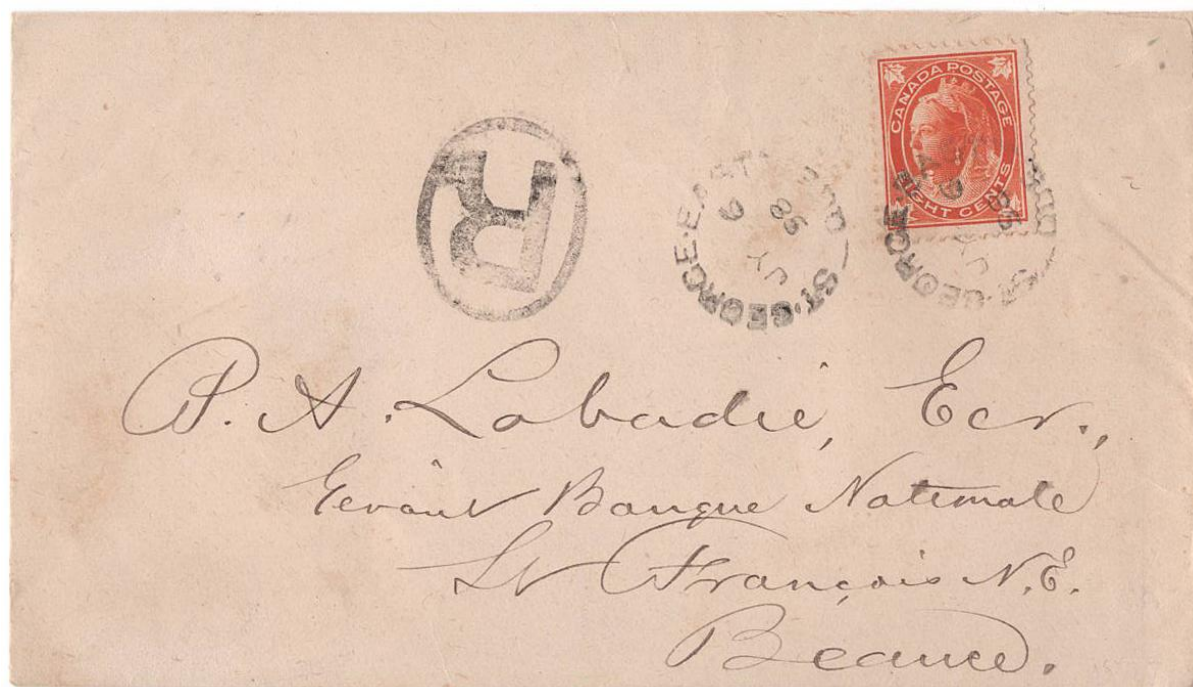 CANADA POSTAGE
EIGHT CENTS
R
ST. GEORGE. EAST
JY 9
98
ST. GEORGE. E
P. A. Labadie, Ecr.,
Gérant Banque Nationale
St François N.E.
Beauce.